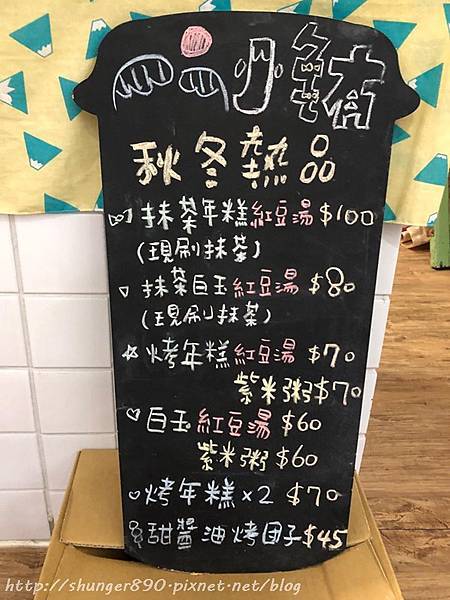 小雪
秋冬熱品
抹茶年糕紅豆湯 $100
(現刷抹茶)
抹茶白玉紅豆湯 $80
(現刷抹茶)
烤年糕紅豆湯 $70
紫米粥$70
白玉紅豆湯 $60
紫米粥 $60
烤年糕 x2 $70
甜醬油烤団子$45
http://shunger890.pixnet.net/blog